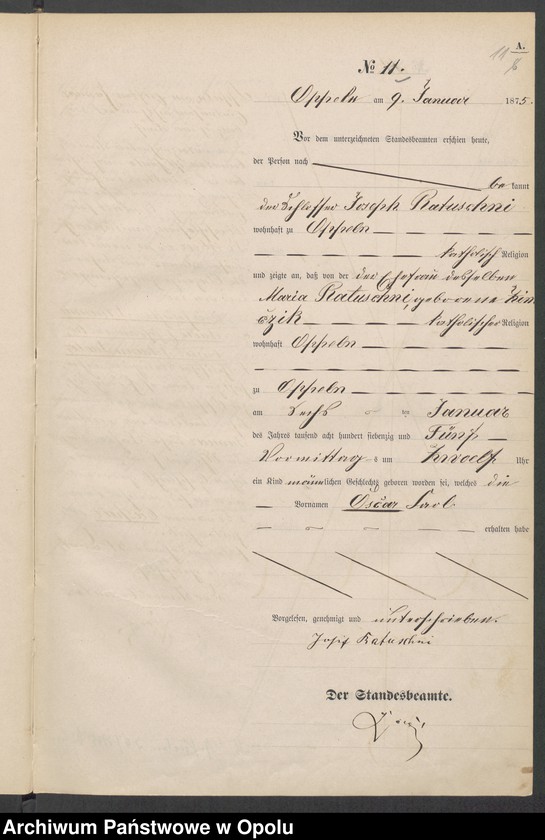 A.
11
No 11.
Oppeln am 9. Januar 1875.
Vor dem unterzeichneten Standesbeamten erschien heute,
der Person nach
bekannt
der Schlosser Joseph Ratuschni
wohnhaft zu Oppeln
katholisch Religion
und zeigte an, daß von der der Ehefrau desselben
Maria Ratuschni, geborene
czik katholischer Religion
wohnhaft Oppeln
zu Oppeln
am Sechs ten Januar
des Jahres tausend acht hundert siebenzig und Fünf
Vormittag s um Zwoelf Uhr
ein Kind männlichen Geschlechts geboren worden sei, welches die
Vornamen Oscar Carl
erhalten habe
Vorgelesen, genehmigt und unterschrieben.
Josef Ratuschni
Der Standesbeamte.
Archiwum Państwowe w Opolu